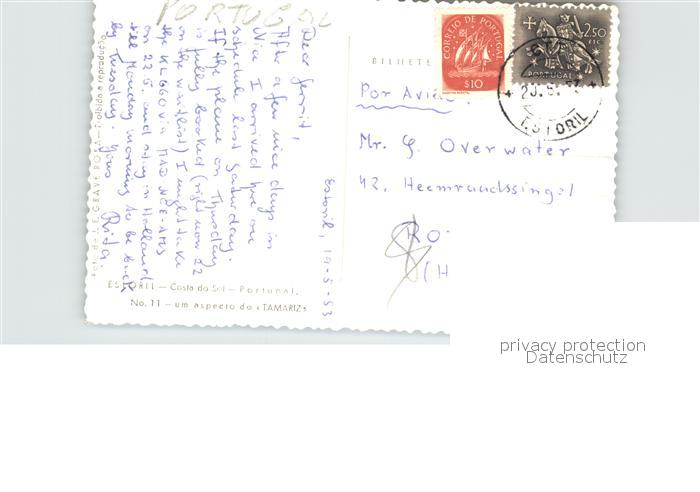 PORTUGAL
Estoril, 19-5-53
Dear Gerrit,
After a few nice days in
Nice I arrived here on
schedule last Saturday.
If the plane on Thursday
is fully booked (right now 22
on the waitlist) I might take
the KL660 via MAD NCE-AMS
on 22.5 and stay in Holland
till Monday morning to be back
by Tuesday. Yours Rita.
ESTORIL — Costa do Sol — Portugal.
No. 11 — um aspecto do «TAMARIZ»
Proibida a reprodução
BILHETE
CORREIO DE PORTUGAL
$10
2$50
PORTUGAL
20.5.
ESTORIL
Por Avião
Mr. G. Overwater
42. Heemraadssingel
RO
(H
privacy protection
Datenschutz